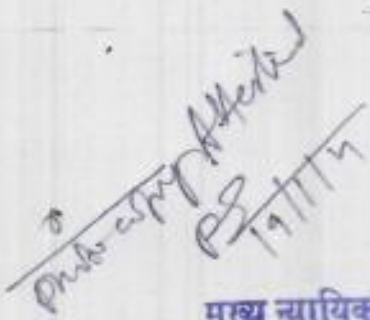 Photo copy Attested
19/1/11
मुख्य न्यायिक